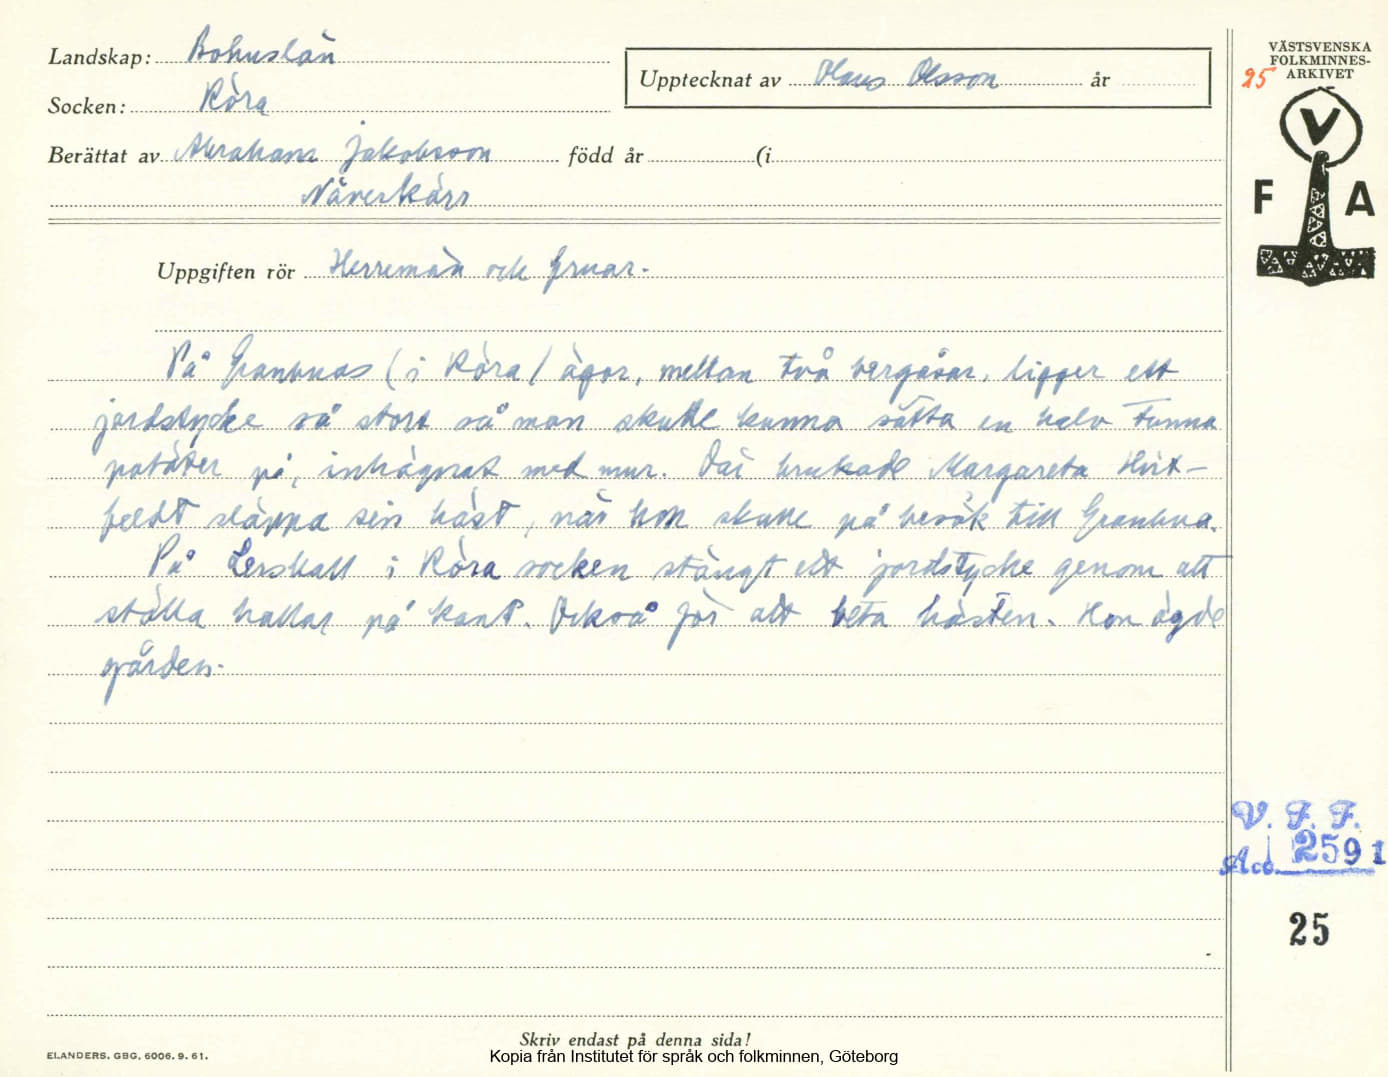 Landskap: Bohuslän
Socken: Röra
Upptecknat av Olaus Olsson år
Berättat av Abraham Jakobsson född år (i
Näverkärr
VÄSTSVENSKA
FOLKMINNES-
ARKIVET
25
V
F A
Uppgiften rör Herremän och fruar.
På Granbuas (i Röra) ägor, mellan två bergåsar, ligger ett
jordstycke så stort så man skulle kunna sätta en halv tunna
potäter på, inhägnat med mur. Där brukade Margareta Hvit-
feldt släppa sin häst, när hon skulle på besök till Granbua.
På Lerskall i Röra socken stängt ett jordstycke genom att
ställa hallar på kant. Också för att beta hästen. Hon ägde
gården.
V. F. F.
Acc. 2591
25
Skriv endast på denna sida!
ELANDERS, GBG, 6006. 9. 61.
Kopia från Institutet för språk och folkminnen, Göteborg